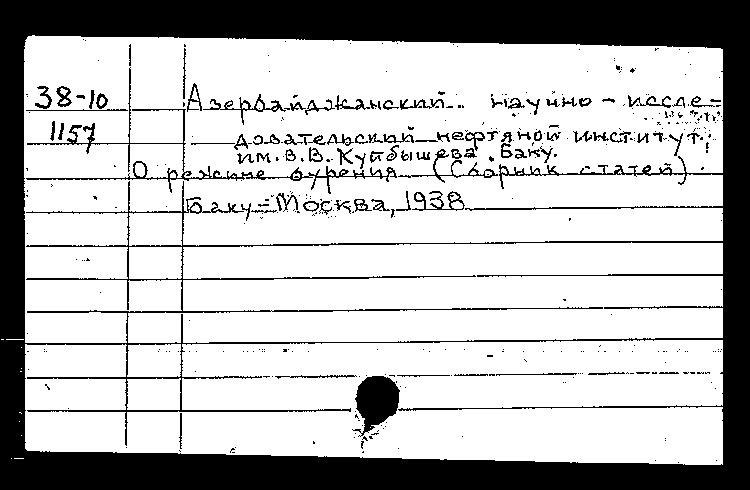 38-10 Азербайджанский научно-иссле=
1157 довательский нефтяной институт
им. В.В. Куйбышева. Баку.
О режиме бурения (Сборник статей).
Баку=Москва, 1938